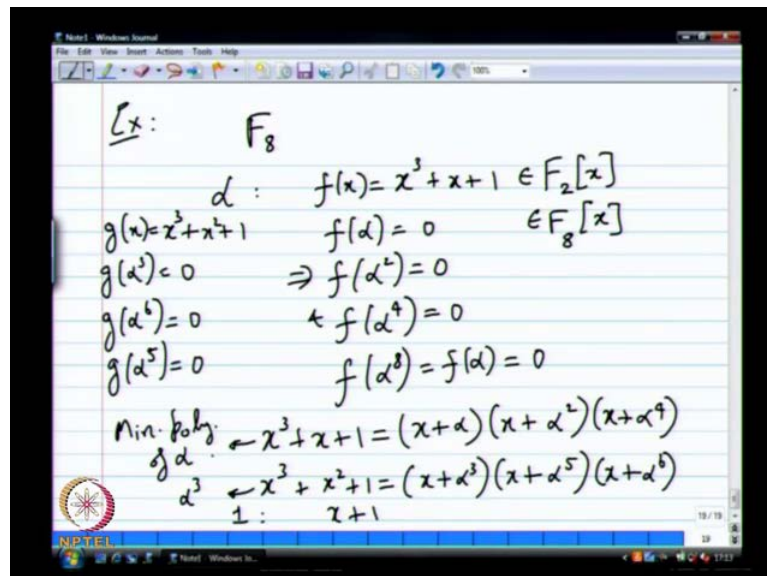 Note1 - Windows Journal
File Edit View Insert Actions Tools Help
100%
Ex: F₈
α : f(x) = x³ + x + 1 ∈ F₂[x]
g(x) = x³ + x² + 1 f(α) = 0 ∈ F₈[x]
g(α³) = 0 ⇒ f(α²) = 0
g(α⁶) = 0 & f(α⁴) = 0
g(α⁵) = 0 f(α⁸) = f(α) = 0
Min. poly. of α ← x³ + x + 1 = (x + α)(x + α²)(x + α⁴)
α³ ← x³ + x² + 1 = (x + α³)(x + α⁵)(x + α⁶)
1 : x + 1
19 / 19
19
NPTEL
Note1 - Windows Jo...
17:13